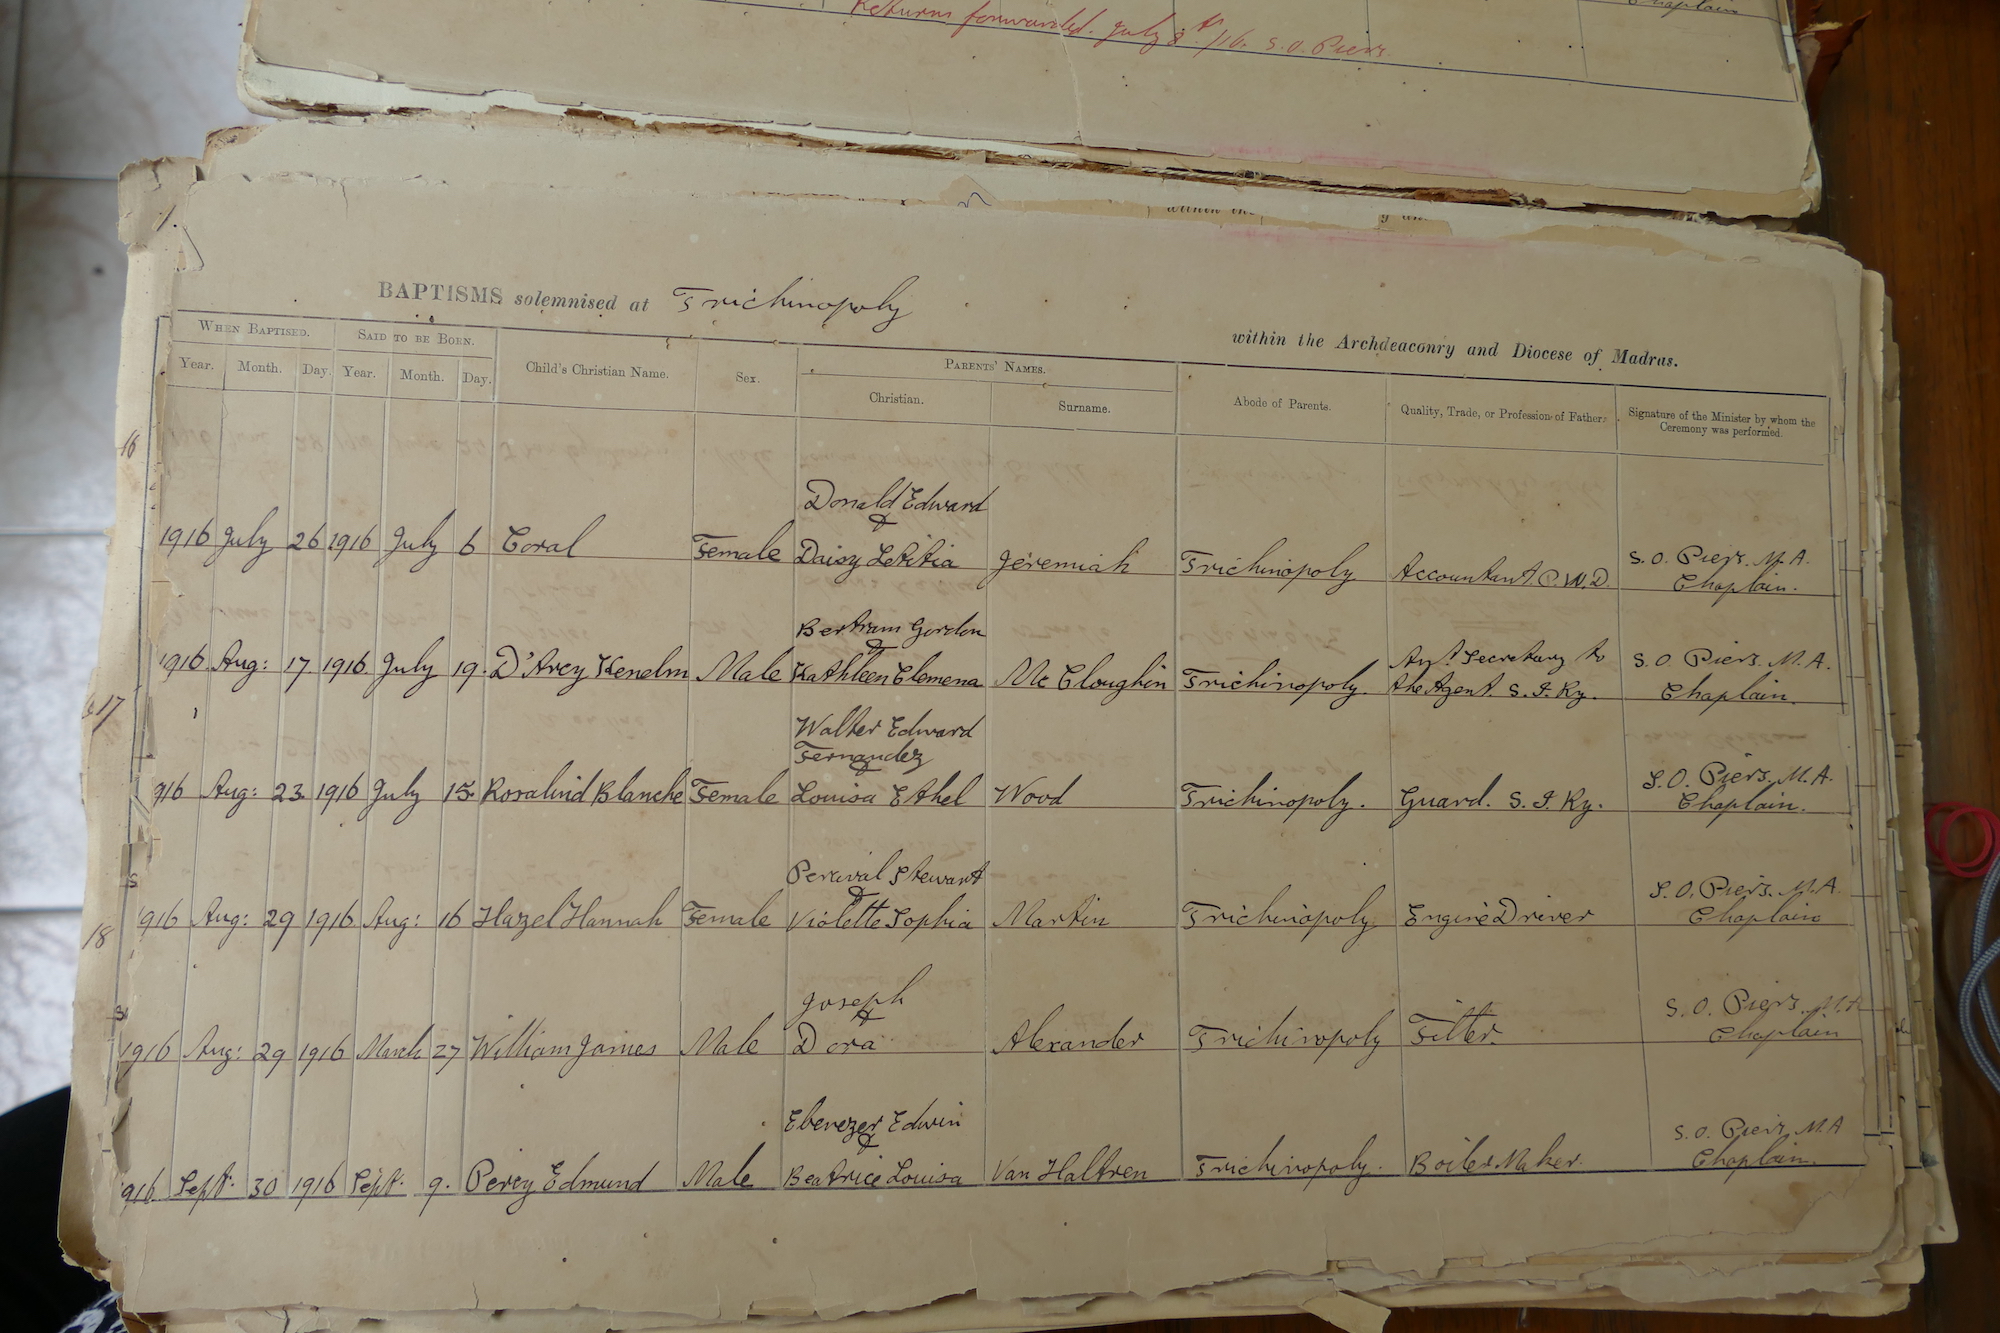 Chaplain
Returns forwarded. July 8th /16. S. O. Piers.
BAPTISMS solemnised at Trichinopoly
within the Archdeaconry and Diocese of Madras.
When Baptised. Said to be Born. Child's Christian Name. Sex. Parents' Names. Abode of Parents. Quality, Trade, or Profession of Father. Signature of the Minister by whom the
Ceremony was performed.
Year. Month. Day. Year. Month. Day. Christian. Surname.
16
Donald Edward
&
1916 July 26 1916 July 6 Coral Female Daisy Letitia Jeremiah Trichinopoly Accountant. P. W. D. S. O. Piers. M. A.
Chaplain.
Bertram Gordon
&
1916. Aug: 17. 1916. July 19. D'Arcy Kenelm Male Kathleen Clemena Mc Cloughin Trichinopoly. Asst. Secretary to
the Agent S. I. Ry. S. O. Piers. M. A.
Chaplain.
17
Walter Edward
Fernandez
&
916 Aug: 23. 1916 July 15. Rosalind Blanche Female Louisa Ethel Wood Trichinopoly. Guard. S. I. Ry. S. O. Piers. M. A.
Chaplain.
Percival Stewart
&
1916 Aug: 29 1916 Aug: 16 Hazel Hannah Female Violette Sophia Martin Trichinopoly Engine Driver S. O. Piers. M. A.
Chaplain
18
Joseph
&
1916 Aug: 29 1916 March 27 William James Male Dora Alexander Trichinopoly Fitter. S. O. Piers. M. A
Chaplain
Ebenezer Edwin
&
916. Sept. 30 1916 Sept. 9. Percy Edmund Male Beatrice Louisa Van Haltren Trichinopoly. Boiler Maker. S. O. Piers, M. A
Chaplain.